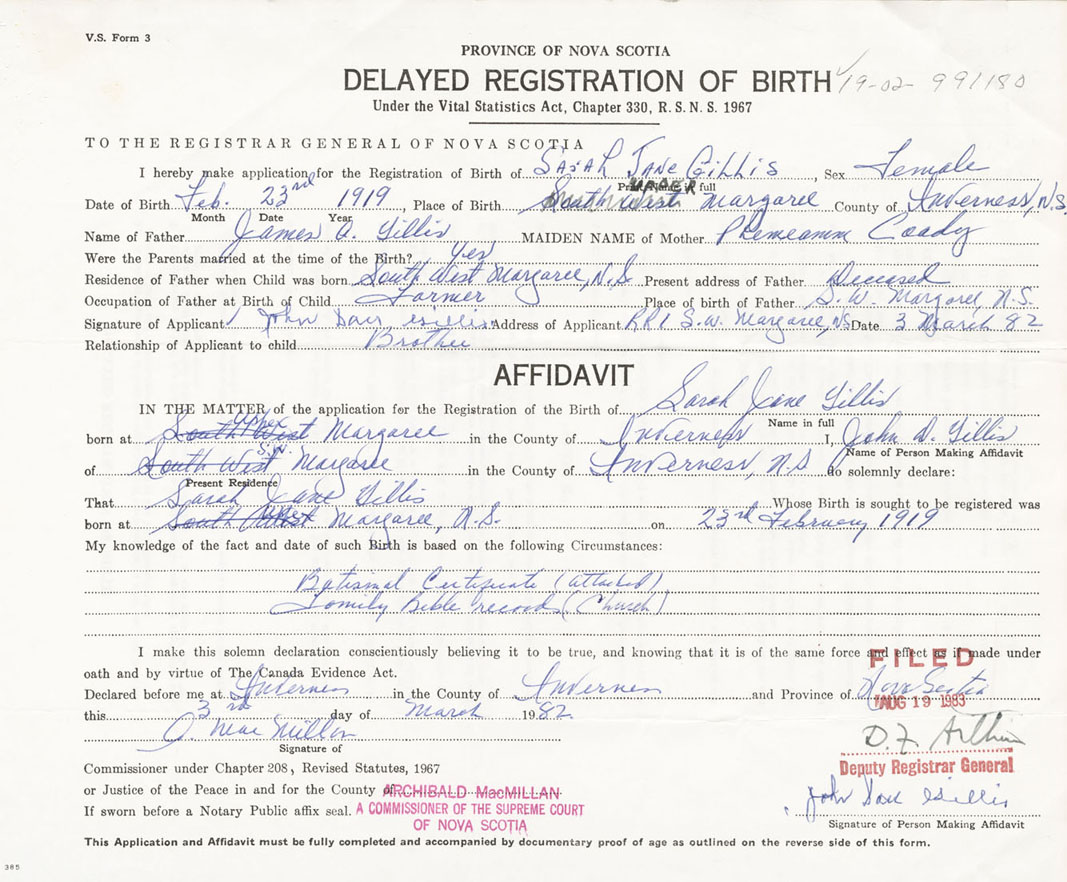 V.S. Form 3
PROVINCE OF NOVA SCOTIA
DELAYED REGISTRATION OF BIRTH 19-02-991180
Under the Vital Statistics Act, Chapter 330, R.S.N.S. 1967
TO THE REGISTRAR GENERAL OF NOVA SCOTIA
I hereby make application for the Registration of Birth of Sarah Jane Gillis, Sex Female
Print Name in full
UPPER
Date of Birth Feb. 23rd 1919, Place of Birth South West Margaree County of Inverness, N.S.
Month Date Year
Name of Father James A. Gillis MAIDEN NAME of Mother Phemeamm Coady
Were the Parents married at the time of the Birth? Yes
Residence of Father when Child was born South West Margaree, N.S Present address of Father Deceased
Occupation of Father at Birth of Child Farmer Place of birth of Father S.W. Margaree, N.S.
Signature of Applicant John Dan Gillis Address of Applicant RR1 S.W. Margaree, NS Date 3 March 82
Relationship of Applicant to child Brother
AFFIDAVIT
IN THE MATTER of the application for the Registration of the Birth of Sarah Jane Gillis
Name in full
Upper
born at South West Margaree in the County of Inverness I, John D. Gillis
Name of Person Making Affidavit
S.W.
of South West Margaree in the County of Inverness, N.S do solemnly declare:
Present Residence
That Sarah Jane Gillis Whose Birth is sought to be registered was
born at South West Upper Margaree, N.S. on 23rd February 1919
My knowledge of the fact and date of such Birth is based on the following Circumstances:
Batismal Certificate (attached)
Family Bible records (Church)
I make this solemn declaration conscientiously believing it to be true, and knowing that it is of the same force and effect as if made under
oath and by virtue of The Canada Evidence Act.
FILED
Declared before me at Inverness in the County of Inverness and Province of Nova Scotia
AUG 19 1983
this 3rd day of March 1982
Signature of
D.F. Arthur
Deputy Registrar General
Commissioner under Chapter 208, Revised Statutes, 1967
or Justice of the Peace in and for the County of
ARCHIBALD MacMILLAN
If sworn before a Notary Public affix seal.
A COMMISSIONER OF THE SUPREME COURT
OF NOVA SCOTIA
John Dan Gillis
Signature of Person Making Affidavit
This Application and Affidavit must be fully completed and accompanied by documentary proof of age as outlined on the reverse side of this form.
385